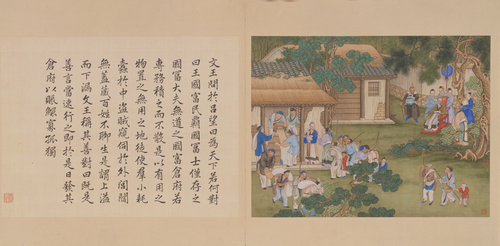 文王問於呂望曰為天下若何對
曰王國富民霸國富士僅存之
國富大夫無道之國富倉府若
專務積之而不散是以有用之
物置之無用之地後使羣小耗
蠹於中盜賊窺伺於外閭閻
無蓋藏百姓不聊生是謂上溢
而下漏文王稱其善對曰既是
善言當速行之即於是日發其
倉府以賑鰥寡孤獨